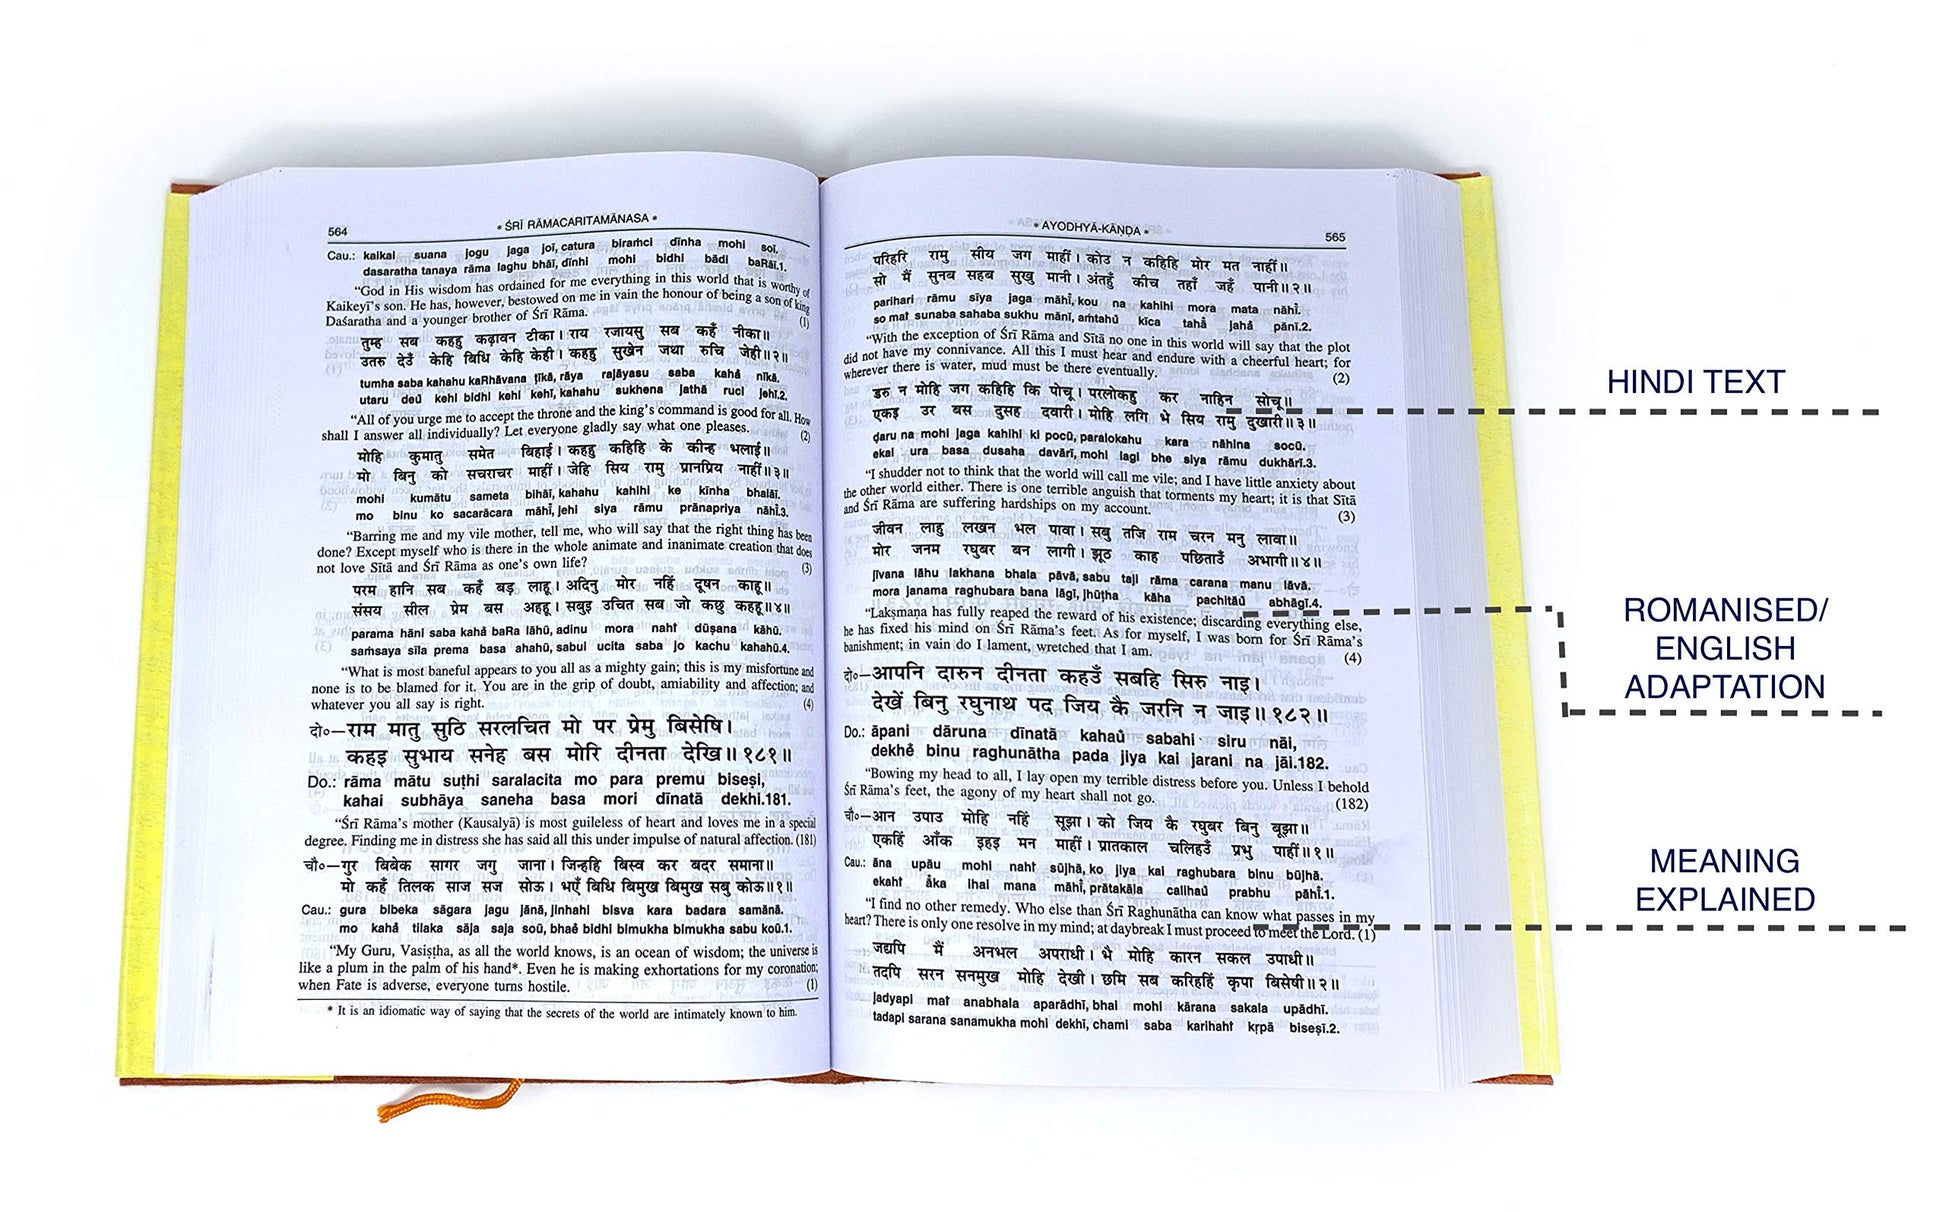 564
* ŚRĪ RĀMACARITAMĀNASA *
Cau.: kaikai suana jogu jaga joī, catura biraṁci dīnha mohi soī.
dasaratha tanaya rāma laghu bhāī, dīnhi mohi bidhi bādi baRāī.1.
“God in His wisdom has ordained for me everything in this world that is worthy of
Kaikeyī’s son. He has, however, bestowed on me in vain the honour of being a son of king
Daśaratha and a younger brother of Śrī Rāma. (1)
तुम्ह सब कहहु कढ़ावन टीका। राय रजायसु सब कहँ नीका॥
उतरु देउँ केहि बिधि केहि केही। कहहु सुखेन जथा रुचि जेही॥२॥
tumha saba kahahu kaRhāvana ṭīkā, rāya rajāyasu saba kahå nīkā.
utaru deů kehi bidhi kehi kehī, kahahu sukhena jathā ruci jehī.2.
“All of you urge me to accept the throne and the king’s command is good for all. How
shall I answer all individually? Let everyone gladly say what one pleases. (2)
मोहि कुमातु समेत बिहाई। कहहु कहिहि के कीन्ह भलाई॥
मो बिनु को सचराचर माहीं। जेहि सिय रामु प्रानप्रिय नाहीं॥३॥
mohi kumātu sameta bihāī, kahahu kahihi ke kīnha bhalāī.
mo binu ko sacarācara māhī̊, jehi siya rāmu prānapriya nāhī̊.3.
“Barring me and my vile mother, tell me, who will say that the right thing has been
done? Except myself who is there in the whole animate and inanimate creation that does
not love Sītā and Śrī Rāma as one’s own life? (3)
परम हानि सब कहँ बड़ लाहू। अदिनु मोर नहिं दूषन काहू॥
संसय सील प्रेम बस अहहू। सबुइ उचित सब जो कछु कहहू॥४॥
parama hāni saba kahå baRa lāhū, adinu mora nahı̇̊ dūṣana kāhū.
saṁsaya sīla prema basa ahahū, sabui ucita saba jo kachu kahahū.4.
“What is most baneful appears to you all as a mighty gain; this is my misfortune and
none is to be blamed for it. You are in the grip of doubt, amiability and affection; and
whatever you all say is right. (4)
दो०—राम मातु सुठि सरलचित मो पर प्रेमु बिसेषि।
कहइ सुभाय सनेह बस मोरि दीनता देखि॥१८१॥
Do.: rāma mātu suṭhi saralacita mo para premu biseṣi,
kahai subhāya saneha basa mori dīnatā dekhi.181.
“Śrī Rāma’s mother (Kausalyā) is most guileless of heart and loves me in a special
degree. Finding me in distress she has said all this under impulse of natural affection. (181)
चौ०—गुर बिबेक सागर जगु जाना। जिन्हहि बिस्व कर बदर समाना॥
मो कहँ तिलक साज सज सोऊ। भएँ बिधि बिमुख बिमुख सबु कोऊ॥१॥
Cau.: gura bibeka sāgara jagu jānā, jinhahi bisva kara badara samānā.
mo kahå tilaka sāja saja soū, bhaẻ bidhi bimukha bimukha sabu koū.1.
“My Guru, Vasiṣṭha, as all the world knows, is an ocean of wisdom; the universe is
like a plum in the palm of his hand*. Even he is making exhortations for my coronation;
when Fate is adverse, everyone turns hostile. (1)
* It is an idiomatic way of saying that the secrets of the world are intimately known to him.
* AYODHYĀ-KĀṆḌA *
565
परिहरि रामु सीय जग माहीं। कोउ न कहिहि मोर मत नाहीं॥
सो मैं सुनब सहब सुखु मानी। अंतहुँ कीच तहाँ जहँ पानी॥२॥
parihari rāmu sīya jaga māhī̊, kou na kahihi mora mata nāhī̊.
so maı̇̊ sunaba sahaba sukhu mānī, aṁtahů kīca tahā̊ jahå pānī.2.
“With the exception of Śrī Rāma and Sītā no one in this world will say that the plot
did not have my connivance. All this I must hear and endure with a cheerful heart; for
wherever there is water, mud must be there eventually. (2)
डरु न मोहि जग कहिहि कि पोचू। परलोकहु कर नाहिन सोचू॥
एकइ उर बस दुसह दवारी। मोहि लगि भे सिय रामु दुखारी॥३॥
ḍaru na mohi jaga kahihi ki pocū, paralokahu kara nāhina socū.
ekai ura basa dusaha davārī, mohi lagi bhe siya rāmu dukhārī.3.
“I shudder not to think that the world will call me vile; and I have little anxiety about
the other world either. There is one terrible anguish that torments my heart; it is that Sītā
and Śrī Rāma are suffering hardships on my account. (3)
जीवन लाहु लखन भल पावा। सबु तजि राम चरन मनु लावा॥
मोर जनम रघुबर बन लागी। झूठ काह पछिताउँ अभागी॥४॥
jīvana lāhu lakhana bhala pāvā, sabu taji rāma carana manu lāvā.
mora janama raghubara bana lāgī, jhūṭha kāha pachitāů abhāgī.4.
“Lakṣmaṇa has fully reaped the reward of his existence; discarding everything else,
he has fixed his mind on Śrī Rāma’s feet. As for myself, I was born for Śrī Rāma’s
banishment; in vain do I lament, wretched that I am. (4)
दो०—आपनि दारुन दीनता कहउँ सबहि सिरु नाइ।
देखें बिनु रघुनाथ पद जिय कै जरनि न जाइ॥१८२॥
Do.: āpani dāruna dīnatā kahaů sabahi siru nāi,
dekhẻ binu raghunātha pada jiya kai jarani na jāi.182.
“Bowing my head to all, I lay open my terrible distress before you. Unless I behold
Śrī Rāma’s feet, the agony of my heart shall not go. (182)
चौ०—आन उपाउ मोहि नहिं सूझा। को जिय कै रघुबर बिनु बूझा॥
एकहिं आँक इहइ मन माहीं। प्रातकाल चलिहउँ प्रभु पाहीं॥१॥
Cau.: āna upāu mohi nahı̇̊ sūjhā, ko jiya kai raghubara binu būjhā.
ekahı̇̊ ā̊ka ihai mana māhī̊, prātakāla calihaů prabhu pāhī̊.1.
“I find no other remedy. Who else than Śrī Raghunātha can know what passes in my
heart? There is only one resolve in my mind; at daybreak I must proceed to meet the Lord. (1)
जद्यपि मैं अनभल अपराधी। भै मोहि कारन सकल उपाधी॥
तदपि सरन सनमुख मोहि देखी। छमि सब करिहहिं कृपा बिसेषी॥२॥
jadyapi maı̇̊ anabhala aparādhī, bhai mohi kārana sakala upādhī.
tadapi sarana sanamukha mohi dekhī, chami saba karihahı̇̊ kṛpā biseṣī.2.
HINDI TEXT
ROMANISED/
ENGLISH
ADAPTATION
MEANING
EXPLAINED